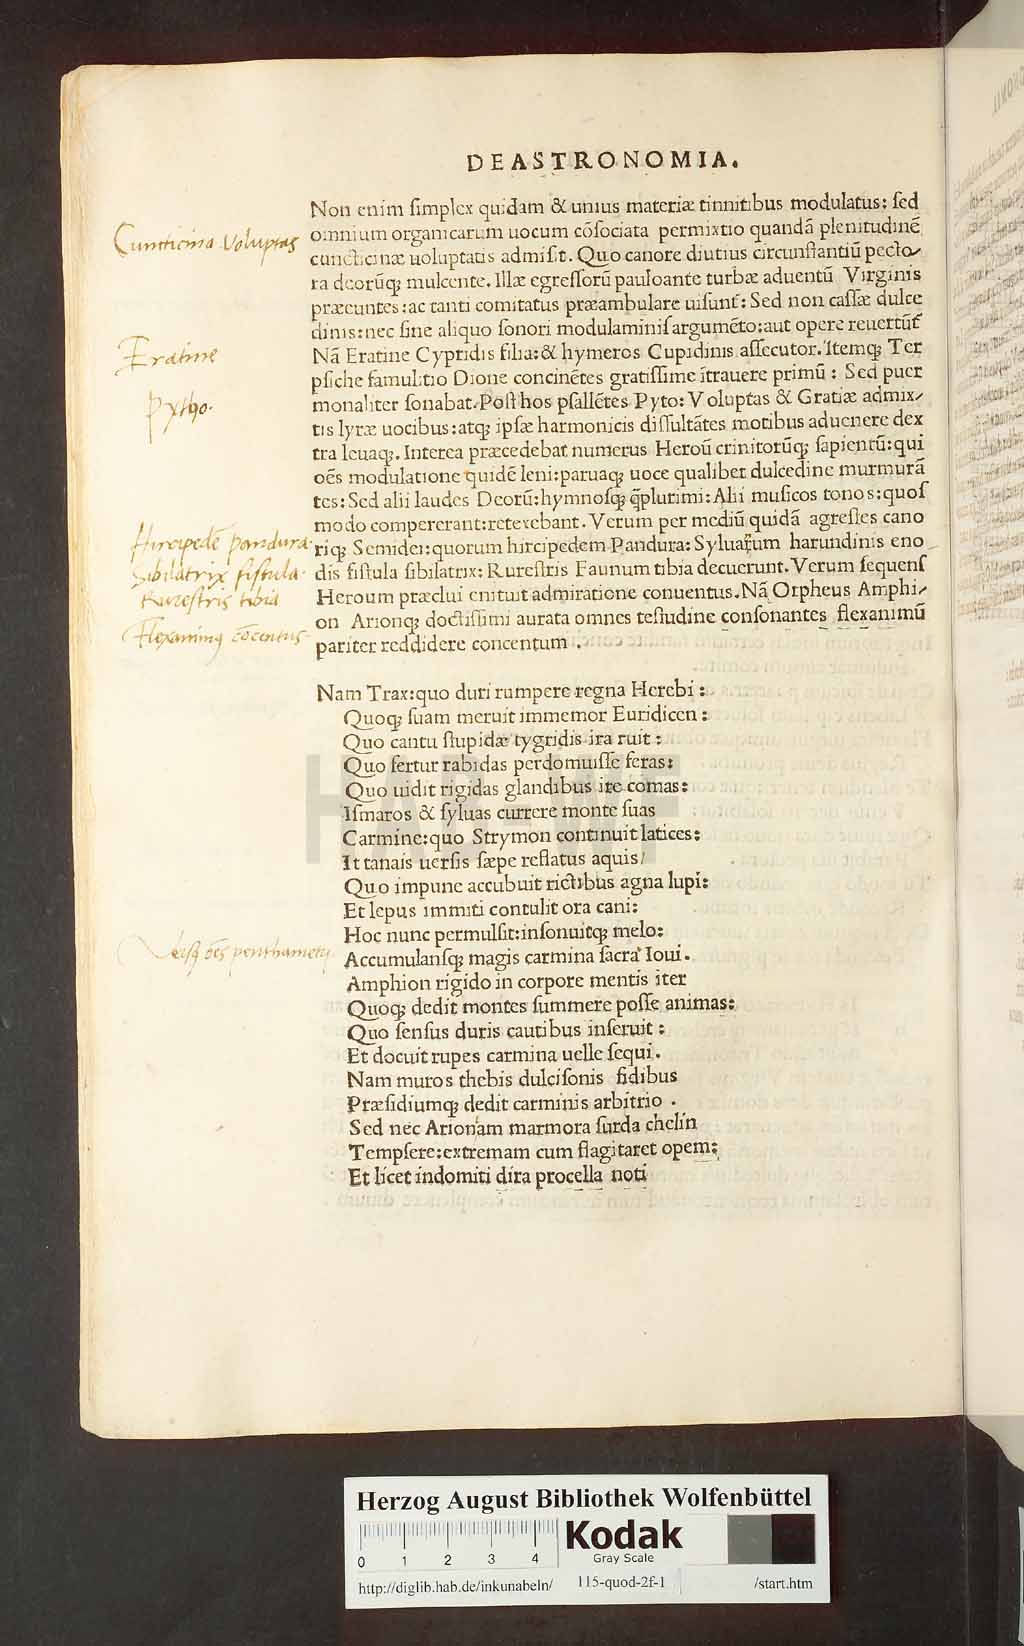 DE ASTRONOMIA.
Non enim ſimplex quidam & unius materiæ tinnitibus modulatus: ſed
omnium organicarum uocum cōſociata permixtio quandā plenitudinē
cuncticinæ uoluptatis admiſit. Quo canore diutius circunſtantiū pecto/
ra deorūq; mulcente. Illæ egreſſorū pauloante turbæ aduentū Virginis
præeuntes: ac tanti comitatus præambulare uiſunt̄: Sed non caſſæ dulce
dinis: nec ſine aliquo ſonori modulaminiſ argumēto: aut opere reuertūt̄
Nā Eratine Cypridis filia: & hymeros Cupidinis aſſecutor. Itemq; Ter
pſiche famulitio Dione concinētes gratiſſime ītrauere primū: Sed puer
monaliter ſonabat. Poſt hos pſallētes Pyto: Voluptas & Gratiæ admix/
tis lyræ uocibus: atq; ipſæ harmonicis diſſultātes motibus aduenere dex
tra leuaq;. Interea præcedebat numerus Heroū crinitorūq; ſapientū: qui
oēs modulatione quidē leni: paruaq; uoce qualibet dulcedine murmurā
tes: Sed alii laudes Deorū: hymnoſq; q̄plurimi: Alii muſicos tonos: quoſ
modo compererant: retexebant. Verum per mediū quidā agreſtes cano
riq; Semidei: quorum hircipedem Pandura: Syluarum harundinis eno
dis fiſtula ſibilatrix: Rureſtris Faunum tibia decuerunt. Verum ſequenſ
Heroum præclui enituit admiratione conuentus. Nā Orpheus Amphi/
on Arionq; doctiſſimi aurata omnes teſtudine conſonantes flexanimū
pariter reddidere concentum.
Nam Trax: quo duri rumpere regna Herebi:
Quoq; ſuam meruit immemor Euridicen:
Quo cantu ſtupidæ tygridis ira ruit:
Quo fertur rabidas perdomuiſſe feras:
Quo uidit rigidas glandibus ire comas:
Iſmaros & ſyluas currere monte ſuas
Carmine: quo Strymon continuit latices:
It tanais uerſis ſæpe reflatus aquis/
Quo impune accubuit rictibus agna lupi:
Et lepus immiti contulit ora cani:
Hoc nunc permulſit: inſonuitq; melo:
Accumulanſq; magis carmina ſacra Ioui.
Amphion rigido in corpore mentis iter
Quoq; dedit montes ſummere poſſe animas:
Quo ſenſus duris cautibus inſeruit:
Et docuit rupes carmina uelle ſequi.
Nam muros thebis dulciſonis fidibus
Præſidiumq; dedit carminis arbitrio.
Sed nec Arionam marmora ſurda chelin
Tempſere: extremam cum flagitaret opem:
Et licet indomiti dira procella noti
Cuncticina Voluptas
Eratine
Pytho.
Hircipedē pandura.
Sibilatrix fistula.
Rurestris tibia
Flexanimus cōcentus.
HAB-WF
Herzog August Bibliothek Wolfenbüttel
0 1 2 3 4
Kodak
Gray Scale
http://diglib.hab.de/inkunabeln/ 115-quod-2f-1 /start.htm